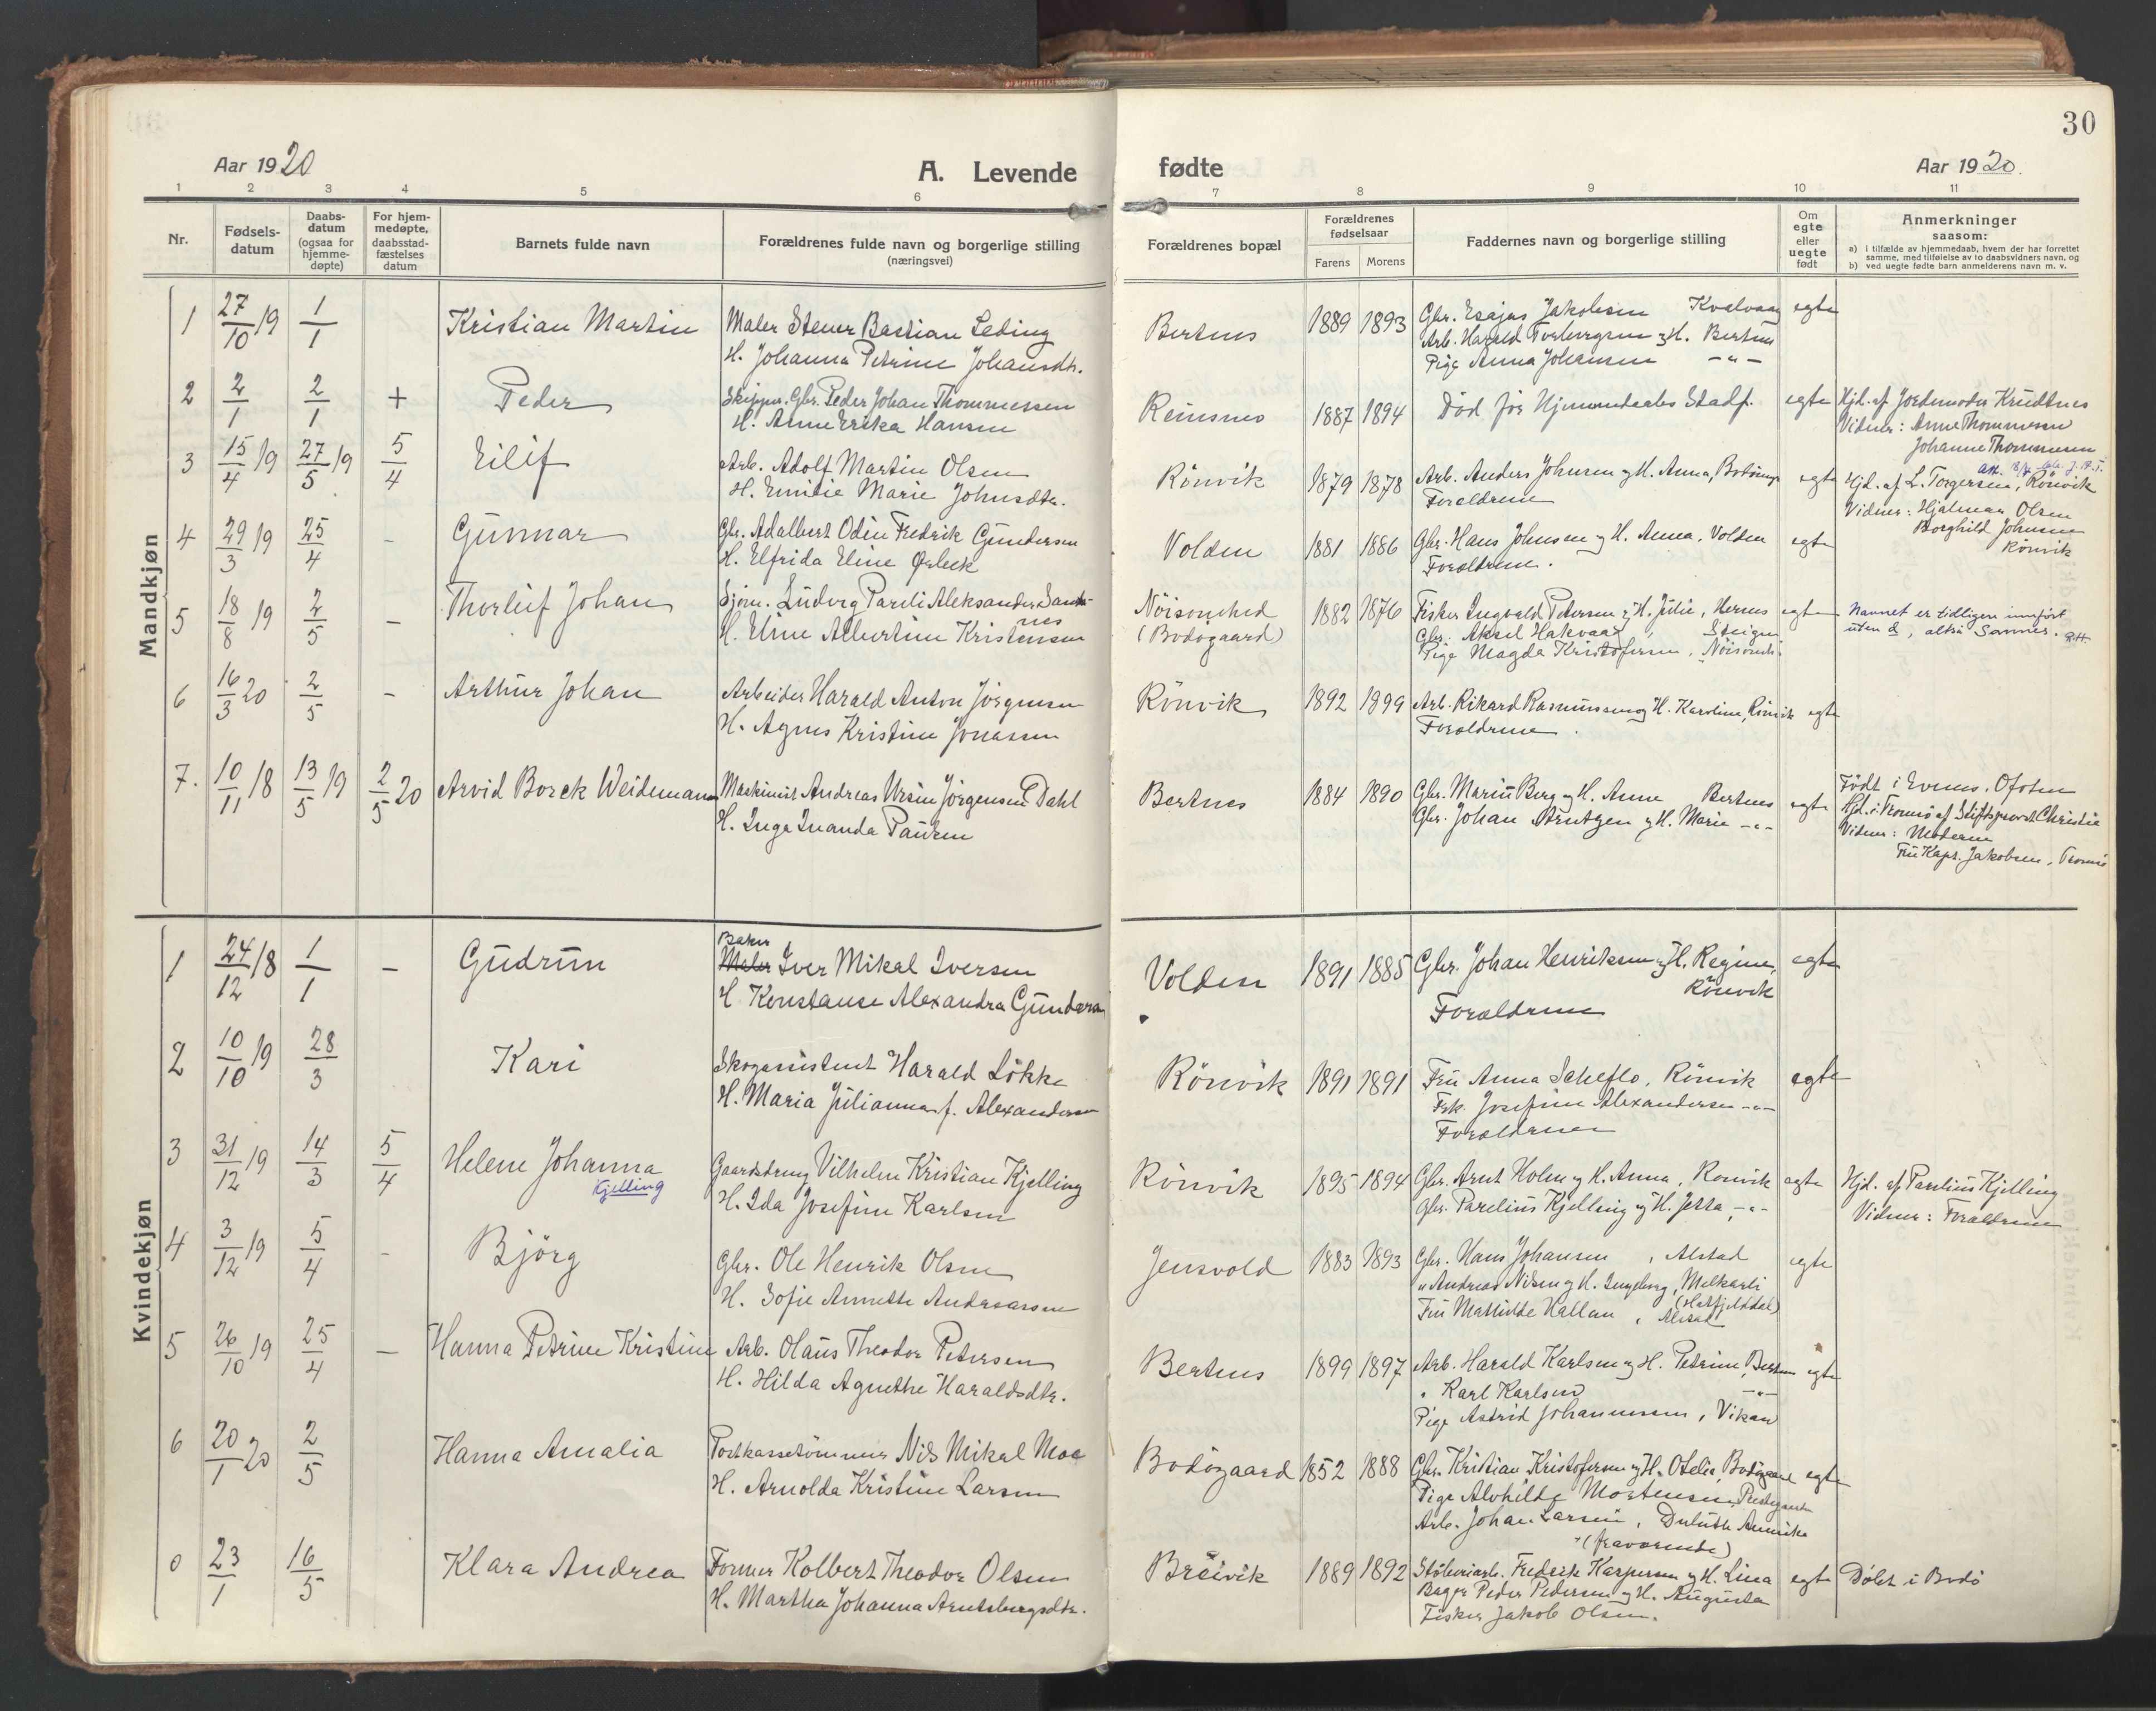 30
Aar 1920
A. Levende
fødte
Aar 1920.
1 2 3 4 5 6 7 8 9 10 11
Nr.
Fødsels-
datum
Daabs-
datum
(ogsaa for
hjemme-
døpte)
For hjem-
medøpte,
daabsstad-
fæstelses
datum
Barnets fulde navn
Forældrenes fulde navn og borgerlige stilling
(næringsvei)
Forældrenes bopæl
Forældrenes
fødselsaar
Farens Morens
Faddernes navn og borgerlige stilling
Om
egte
eller
uegte
født
Anmerkninger
saasom:
a) i tilfælde av hjemmedaab, hvem der har forrettet
samme, med tilføielse av to daabsvidners navn, og
b) ved uegte fødte barn anmelderens navn m. v.
Mandkjøn
1 27/10 19 1/1 Kristian Martin
Maler Stener Bastian Leding
H. Johanna Petrine Johansdtr.
Bertnes 1889 1893
Gbr. Esajas Jakobsen Kvalvaag
Arb. Harald Torbergsen og H. Bertnes
Pige Anna Johansen -"-
egte
2 2/1 2/1 + Peder
Skipper. Gbr. Peder Johan Thommessen
H. Anna Erika Hansen
Reinsnes 1887 1894
Død før Hjemmedaabs Stadf.
egte
Hjd. af Jordemoder Knudtnes
Vidner: Anne Thommessen
Johanne Thommesen
3 15/4 19 27/5 19 5/4 Eilif
Arb. Adolf Martin Olsen
H. Emilie Marie Johnsdtr.
Rönvik 1879 1878
Arb. Anders Johnsen og H. Anna,
Forældrene
egte
Hjd. af L. Torgersen, Rönvik
Vidner: Hjalmar Olsen
Borghild Johnsen
Rönvik
4 29/3 19 25/4 - Gunnar
Gbr. Adalbert Odin Fredrik Gundersen
H. Elfrida Eline Ørbeck
Volden 1881 1886
Gbr. Hans Johnsen og H. Anna, Volden
Forældrene.
egte
5 18/8 19 2/5 - Thorleif Johan
Sjøm. Ludvig Pareli Aleksander Sand-
nes
H. Eline Albertine Kristensen
Nöisomhed
(Bodøgaard)
1882 1876
Fisker Ingvald Petersen og H. Julie, Hernes
Gbr. Aksel Hakvaag, Steigen
Pige Magda Kristofersen, Nöisomh.
egte
Navnet er tidligere innført
uten d, altså Sannes.
6 16/3 20 2/5 - Arthur Johan
Arbeider Harald Anton Jörgensen
H. Agnes Kristine Jonassen
Rönvik 1892 1899
Arb. Rikard Rasmussen og H. Karoline, Rönvik
Forældrene.
egte
7. 10/11 18 13/5 19 2/5 20 Arvid Borck Weidemann
Maskinist Andreas Ursin Jörgensen Dahl
H. Inga Inanda Paulsen
Bertnes 1884 1890
Gbr. Marius Berg og H. Anne Bertnes
Gbr. Johan Arntzen og H. Marie -"-
egte
Født i Evenes. Ofoten
Hjd. i Tromsø af Stiftsprovst Christie
Vidner: Moderen
Fru Kapt. Jakobsen, Tromsø
Kvindekjøn
1 24/12 18 1/1 - Gudrun
Baker
Maler Iver Mikal Iversen
H. Konstanse Alexandra Gundersen
Volden 1891 1885
Gbr. Johan Henriksen og H. Regine,
Rönvik
Forældrene
egte
2 10/10 19 28/3 Kari
Skogassistent Harald Løkke
H. Maria Julianna f. Alexandersen
Rönvik 1891 1891
Fru Anna Scheflo, Rönvik
Frk. Josefine Alexandersen -"-
Forældrene
egte
3 31/12 19 14/3 5/4 Helene Johanna
Kjelling
Gaardsdreng Vilhelm Kristian Kjelling
H. Ida Josefine Karlsen
Rönvik 1895 1894
Gbr. Arnt Holm og H. Anna, Ronvik
Gbr. Parelius Kjelling og H. Jetta -"-
egte
Hjd. af Parelius Kjelling
Vidner: Forældrene
4 3/12 19 5/4 - Björg
Gbr. Ole Henrik Olsen
H. Sofie Annette Andreassen
Jensvold 1883 1893
Gbr. Hans Johansen, Alstad
" Andreas Nilsen og H. Ingeborg, Melkarli
(Hatfjelddal)
Fru Mathilde Hallan, Alstad
egte
5 26/10 19 25/4 - Hanna Petrine Kristine
Arb. Olaus Theodor Petersen
H. Hilda Agnethe Haraldsdtr.
Bertnes 1899 1897
Arb. Harald Karlsen og H. Petrine, Bertnes
" Karl Karlsen -"-
Pige Astrid Johannessen, Vikan
egte
6 20/1 20 2/5 Hanna Amalia
Postkassetømmer Nils Mikal Moe
H. Arnolda Kristine Larsen
Bodøgaard 1852 1888
Gbr. Kristian Kristofersen og H. Otelie, Bodøgaard
Pige Alvhilde Mortensen,
Arb. Johan Larsen, Duluth Amerika
(fraværende)
egte
0 23/1 16/5 Klara Andrea
Former Kolbert Theodor Olsen
H. Martha Johanna Arntsbergsdtr.
Breivik 1889 1892
Støberiarb. Fredrik Kaspersen og H. Lina
Bager Peder Pedersen og H. Augusta
Fisker Jakob Olsen.
egte
Døbt i Bodø